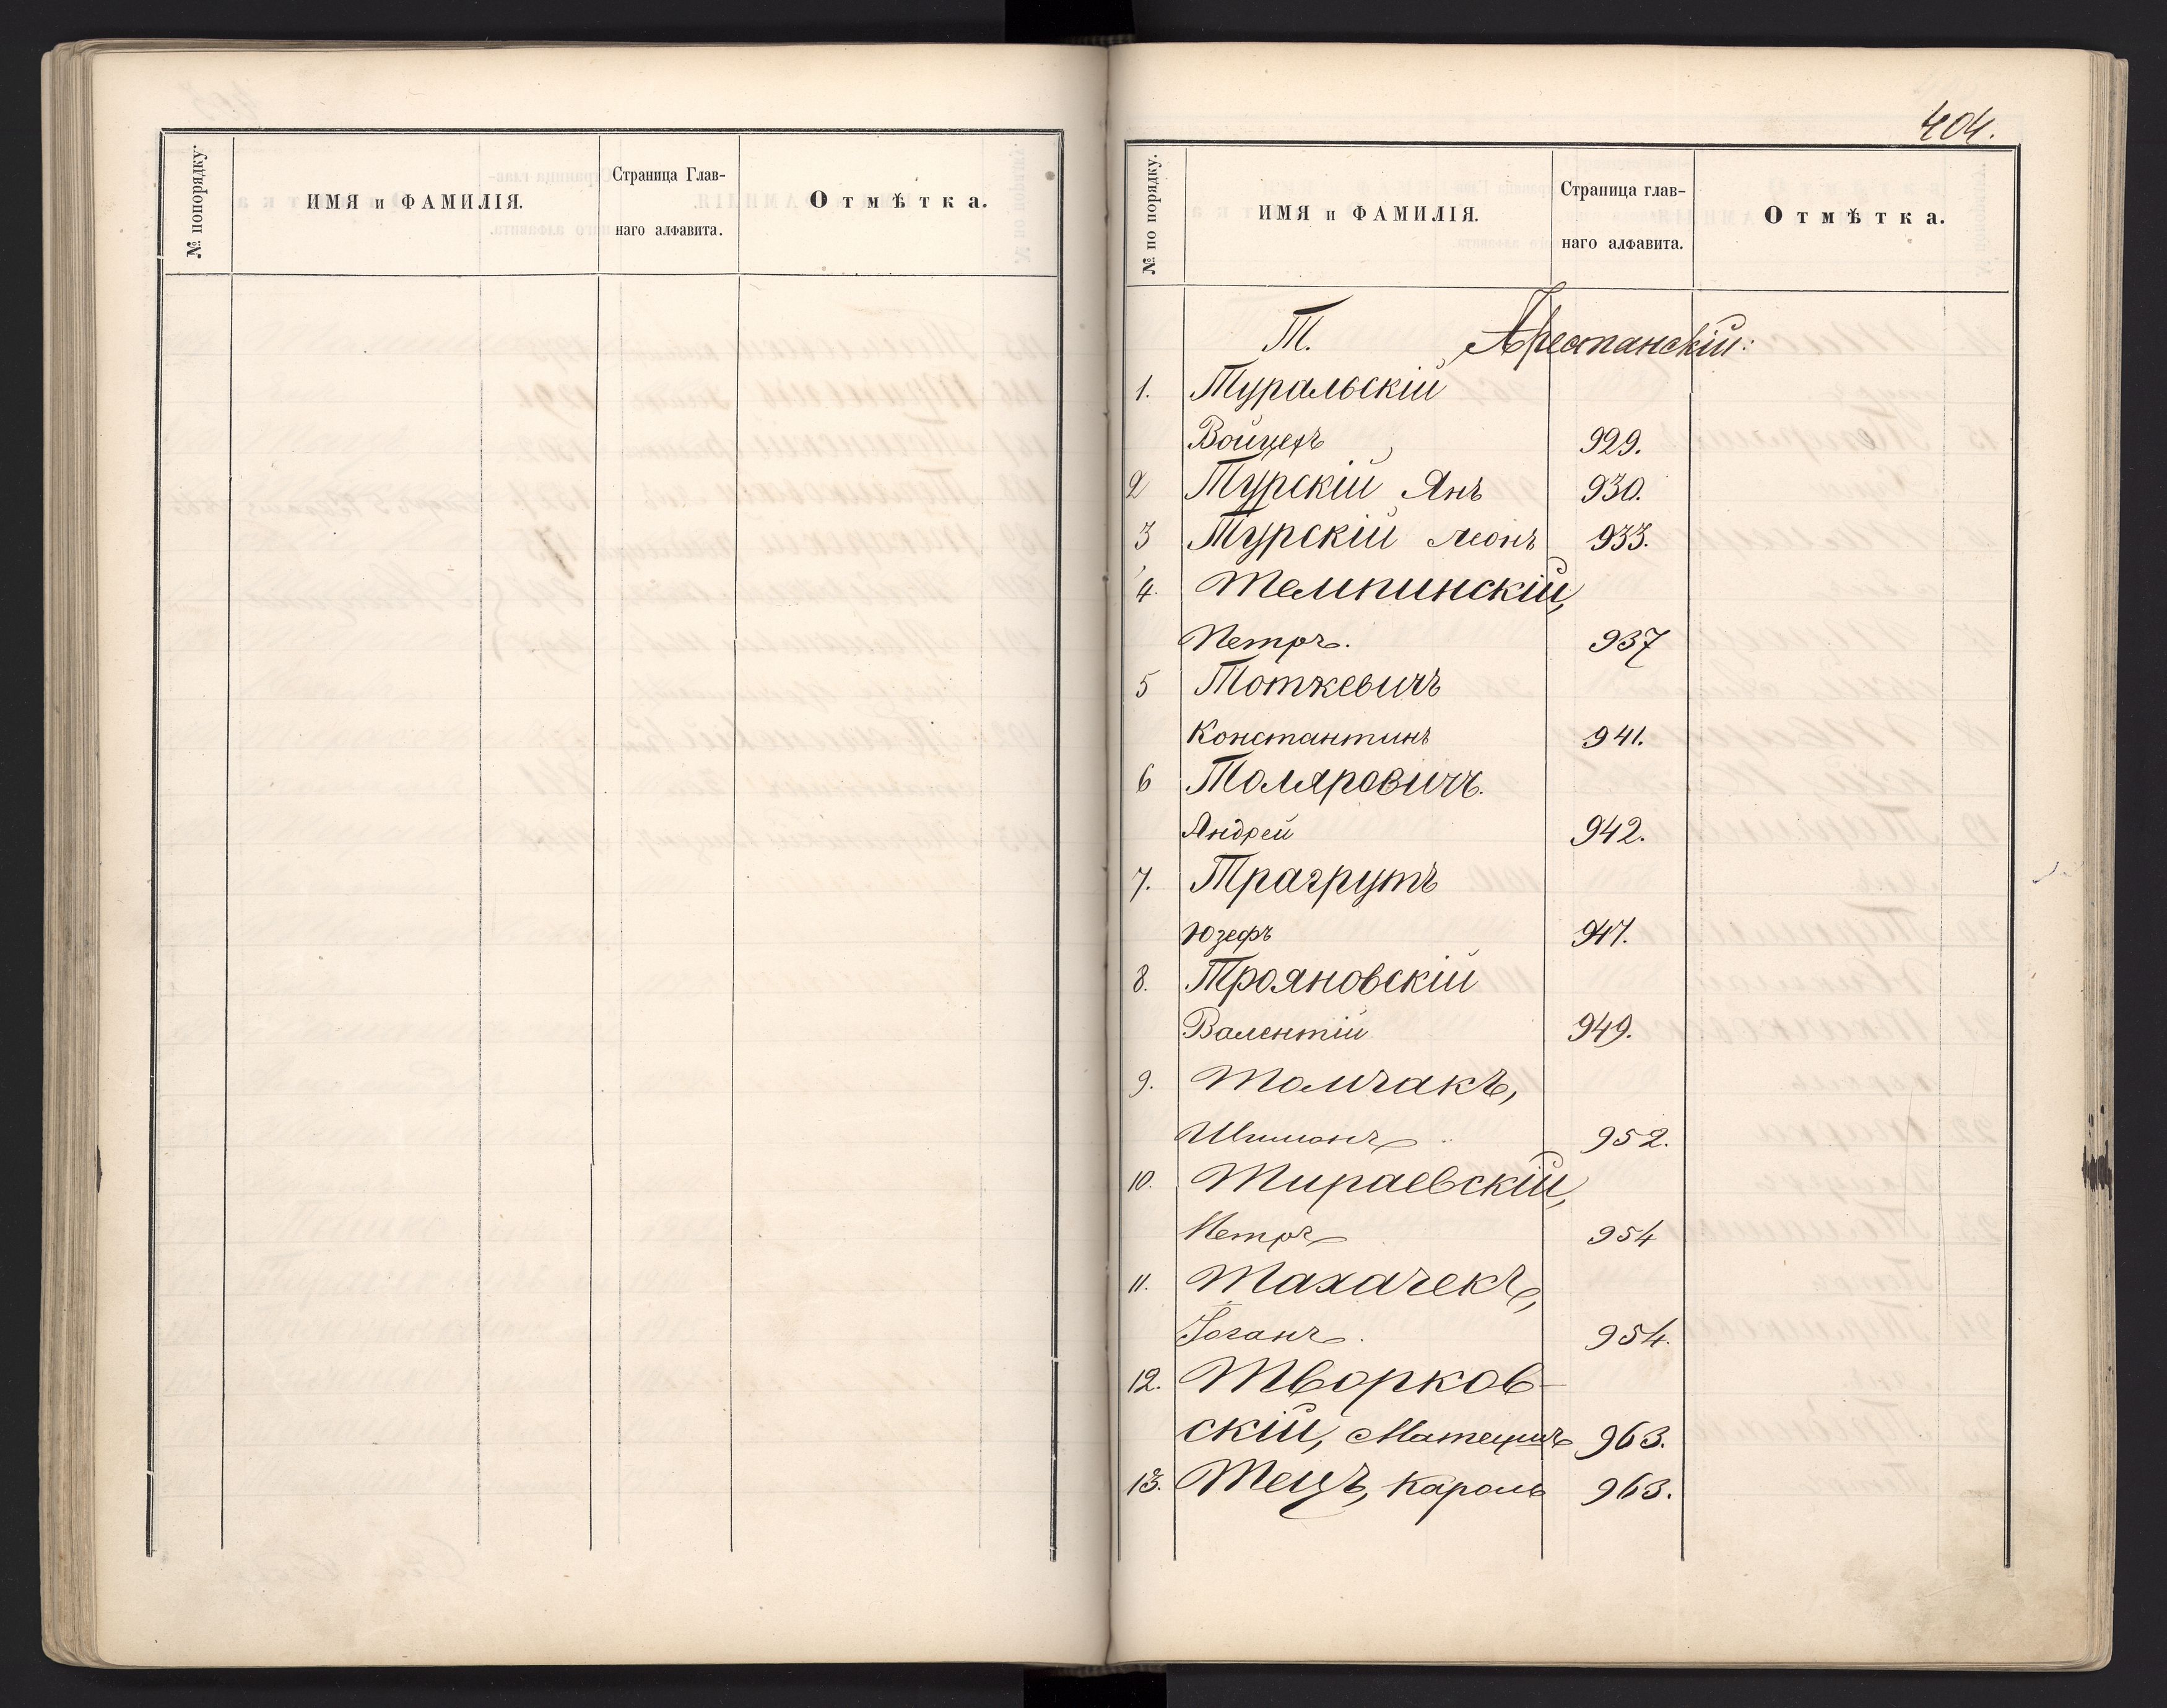 № попорядку.
ИМЯ и ФАМИЛІЯ.
Страница Глав-
наго алфавита.
Отмѣтка.
404.
№ по порядку.
ИМЯ и ФАМИЛІЯ.
Страница глав-
наго алфавита.
Отмѣтка.
Т. Арестанскій:
1. Туральскій
Войцехъ 929.
2 Турскій Янъ 930.
3 Турскій Леонъ 933.
4. Темпинскій,
Петръ. 937
5 Тоткевичъ
Константинъ 941.
6 Толяровичъ.
Андрей 942.
7. Трагрутъ
Юзефъ 947.
8. Трояновскій
Валентій 949.
9. Томчакъ,
Шимонъ 952.
10. Тираевскій,
Петръ 954
11. Тахачекъ,
Іоганъ. 954.
12. Творков-
скій, 963.
13. Тецъ, Кароль 963.